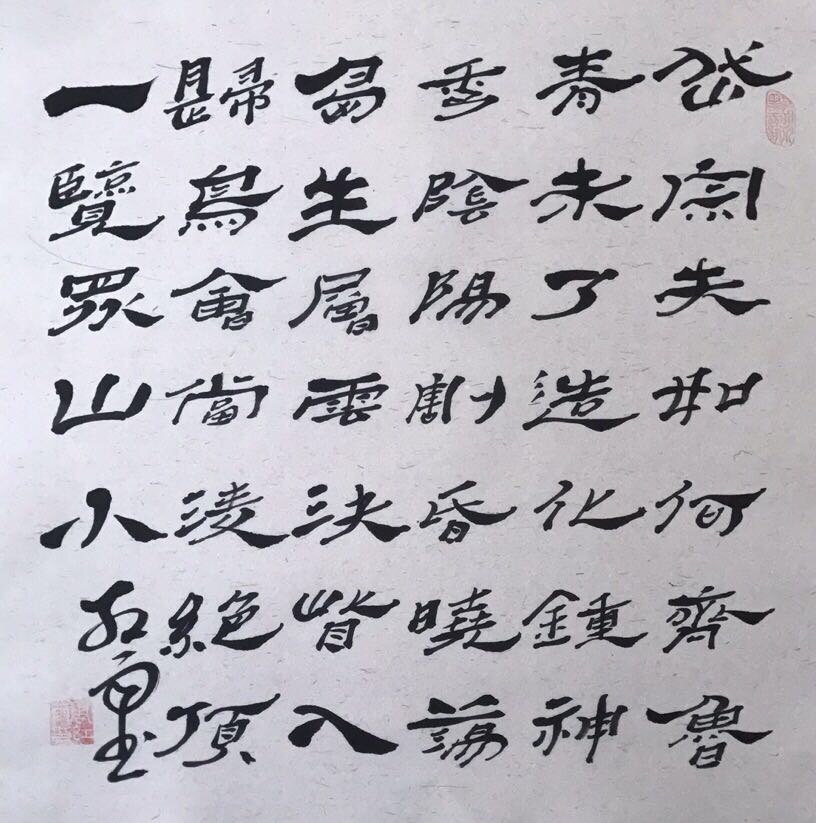 岱宗失如何齊魯
青未了造化鍾神
秀陰陽割昏曉蕩
胷生層雲決眥入
歸鳥會當淩絕頂
一覽眾山小